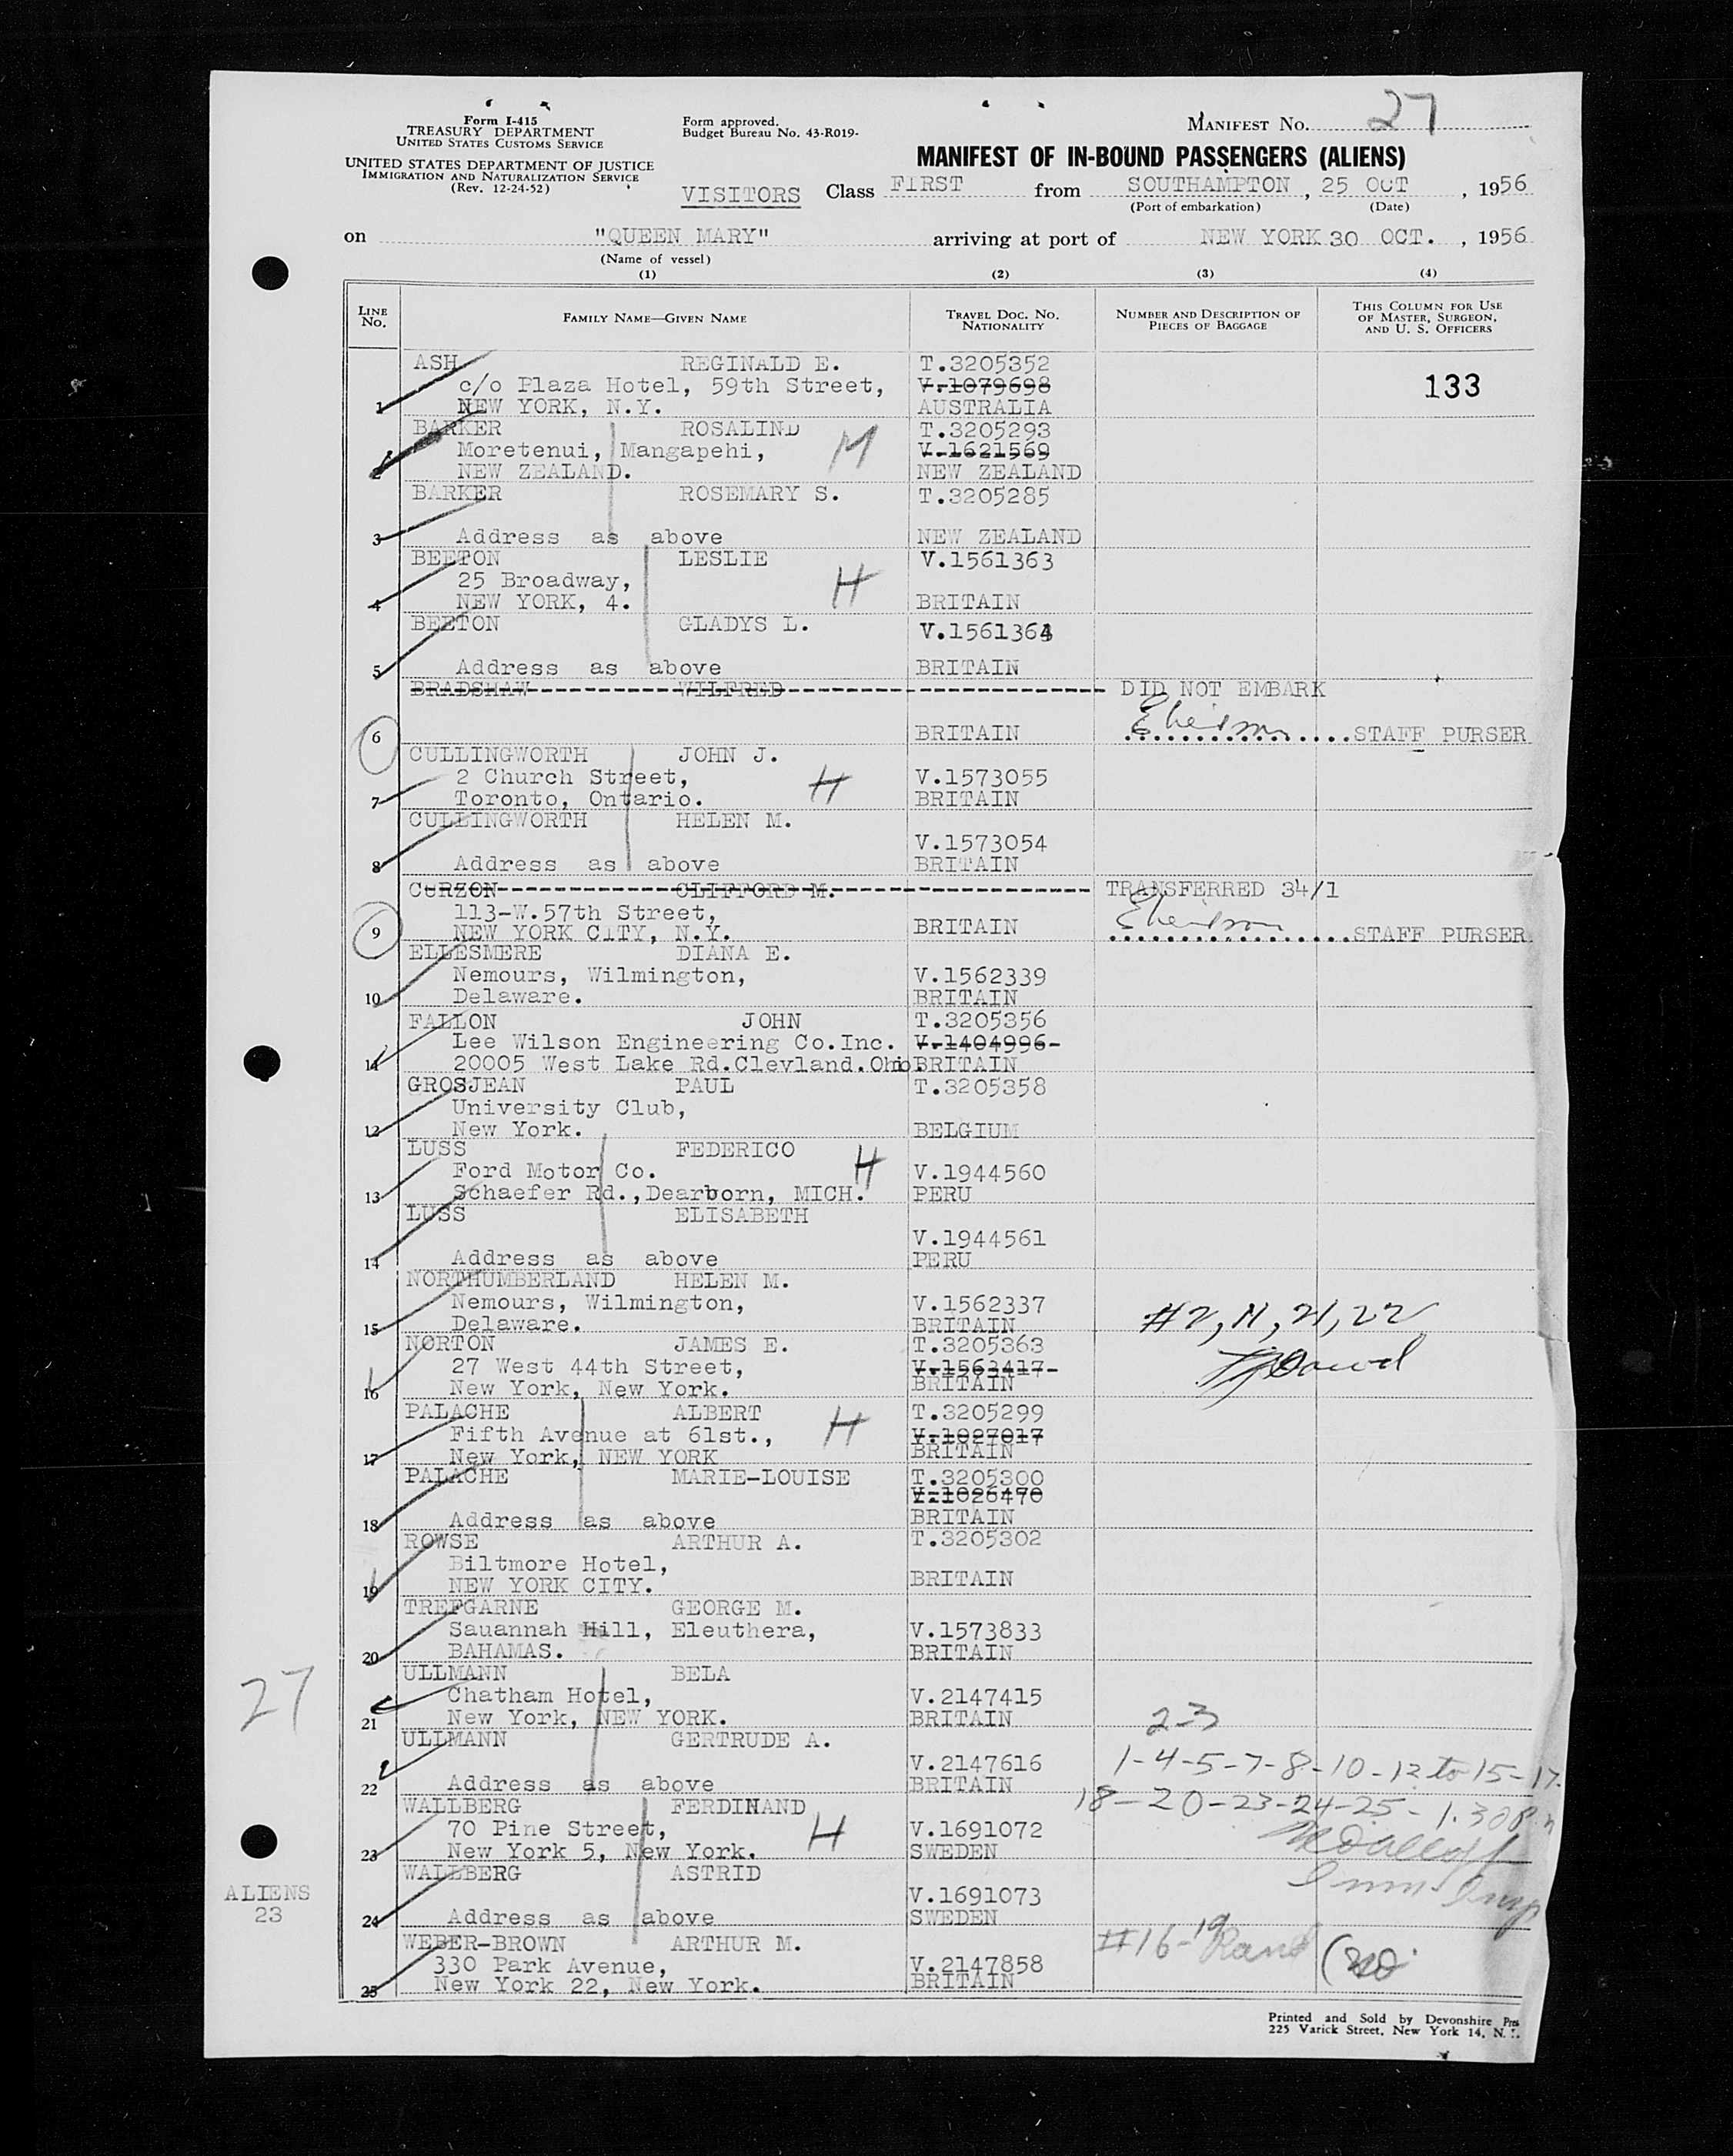 Form I-415
TREASURY DEPARTMENT
UNITED STATES CUSTOMS SERVICE
UNITED STATES DEPARTMENT OF JUSTICE
IMMIGRATION AND NATURALIZATION SERVICE
(Rev. 12-24-52)
Form approved.
Budget Bureau No. 43-R019-
MANIFEST NO. 27
MANIFEST OF IN-BOUND PASSENGERS (ALIENS)
VISITORS Class FIRST from SOUTHAMPTON , 25 OCT , 1956
(Port of embarkation) (Date)
on "QUEEN MARY" arriving at port of NEW YORK 30 OCT. , 1956
(Name of vessel)
(1) (2) (3) (4)
LINE No. FAMILY NAME—GIVEN NAME TRAVEL DOC. NO. NATIONALITY NUMBER AND DESCRIPTION OF PIECES OF BAGGAGE THIS COLUMN FOR USE OF MASTER, SURGEON, AND U. S. OFFICERS
ASH REGINALD E. T.3205352
c/o Plaza Hotel, 59th Street, V.1079698 133
1 NEW YORK, N.Y. AUSTRALIA
BARKER ROSALIND T.3205293
Moretenui, Mangapehi, M V.1621569
2 NEW ZEALAND. NEW ZEALAND
BARKER ROSEMARY S. T.3205285
3 Address as above NEW ZEALAND
BEETON LESLIE V.1561363
25 Broadway, H
4 NEW YORK, 4. BRITAIN
BEETON GLADYS L. V.1561364
5 Address as above BRITAIN
BRADSHAW WILFRED DID NOT EMBARK
6 BRITAIN STAFF PURSER
CULLINGWORTH JOHN J.
2 Church Street, H V.1573055
7 Toronto, Ontario. BRITAIN
CULLINGWORTH HELEN M.
V.1573054
8 Address as above BRITAIN
CURZON CLIFFORD M. TRANSFERRED 34/1
113-W.57th Street,
9 NEW YORK CITY, N.Y. BRITAIN STAFF PURSER
ELLESMERE DIANA E.
Nemours, Wilmington, V.1562339
10 Delaware. BRITAIN
FALLON JOHN T.3205356
Lee Wilson Engineering Co.Inc. V.1404996-
11 20005 West Lake Rd.Clevland.Ohio BRITAIN
GROSJEAN PAUL T.3205358
University Club,
12 New York. BELGIUM
LUSS FEDERICO
Ford Motor Co. H V.1944560
13 Schaefer Rd.,Dearborn, MICH. PERU
LUSS ELISABETH
V.1944561
14 Address as above PERU
NORTHUMBERLAND HELEN M.
Nemours, Wilmington, V.1562337 #2, 11, 21, 22
15 Delaware. BRITAIN
NORTON JAMES E. T.3205363
27 West 44th Street, V.1563417-
16 New York, New York. BRITAIN
PALACHE ALBERT T.3205299
Fifth Avenue at 61st., H V.1027017
17 New York, NEW YORK BRITAIN
PALACHE MARIE-LOUISE T.3205300
V.1026470
18 Address as above BRITAIN
ROWSE ARTHUR A. T.3205302
Biltmore Hotel,
19 NEW YORK CITY. BRITAIN
TREFGARNE GEORGE M.
Sauannah Hill, Eleuthera, V.1573833
20 BAHAMAS. BRITAIN
27
ULLMANN BELA
Chatham Hotel, V.2147415
21 New York, NEW YORK. BRITAIN 23
ULLMANN GERTRUDE A.
V.2147616 1-4-5-7-8-10-12 to 15-17-
22 Address as above BRITAIN
WALLBERG FERDINAND 18-20-23-24-25- 1.30P
70 Pine Street, H V.1691072
23 New York 5, New York. SWEDEN
WALLBERG ASTRID
V.1691073
24 Address as above SWEDEN
ALIENS
23
WEBER-BROWN ARTHUR M. #16-19
330 Park Avenue, V.2147858
25 New York 22, New York. BRITAIN
Printed and Sold by Devonshire
225 Varick Street, New York 14, N.